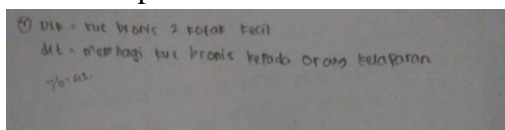 ④ Dik = kue bronis 2 kotak kecil
dit = membagi kue bronis kepada orang kelaparan
Jb =